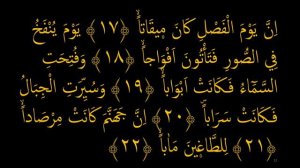 اِنَّ يَوْمَ الْفَصْلِ كَانَ مِيقَاتاًۙ ﴿١٧﴾ يَوْمَ يُنْفَخُ
فِي الصُّورِ فَتَأْتُونَ اَفْوَاجاًۙ ﴿١٨﴾ وَفُتِحَتِ
السَّمَٓاءُ فَكَانَتْ اَبْوَاباًۙ ﴿١٩﴾ وَسُيِّرَتِ الْجِبَالُ
فَكَانَتْ سَرَاباًۜ ﴿٢٠﴾ اِنَّ جَهَنَّمَ كَانَتْ مِرْصَاداًۙ
﴿٢١﴾ لِلطَّاغِينَ مَاٰباًۙ ﴿٢٢﴾